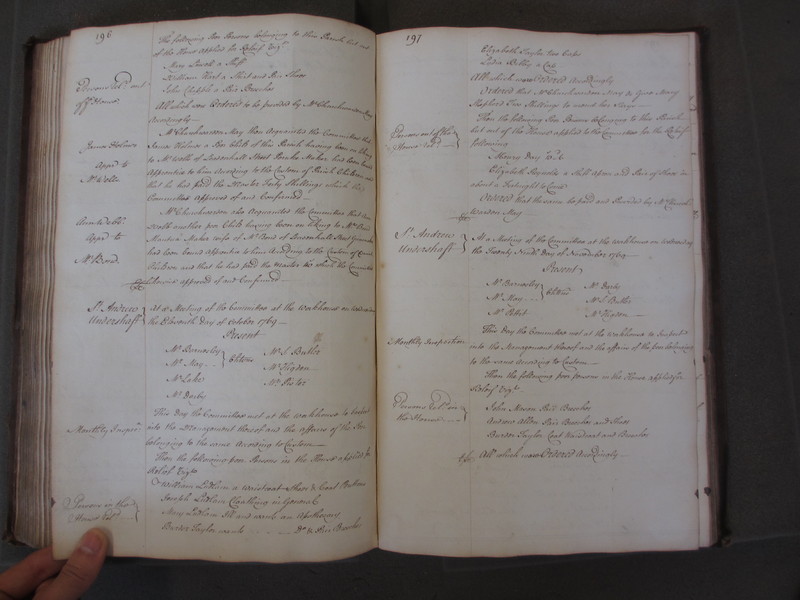 196
The following Poor Persons belonging to this Parish but out
of the House applied for Releif Viz.t
Mary Lovell a Shift
William Hart a Shirt and Pair Shoes
John Chapple a Pair Breeches
All which was Ordered to be provided by Mr. Churchwarden May
Accordingly
Persons rel.d out
of ye. House
Mr. Churchwarden May then Acquainted the Committee that
James Holmes a Poor Child of this Parish having been on liking
to Mr. Wolts of Leadenhall Street Maker had been bound
Apprentice to him According to the Custom of Parish Children and
that he had paid the Master Forty Shillings which this
Committee approved of and Confirmed
James Holmes
App.d to
Mr. Wolts
Mr. Churchwarden also Acquainted the Committee that Ann
another poor Child having been on liking to Mrs. Bond
Mantua Maker wife of Mr. Bond of Leadenhall Street
had been bound Apprentice to him According to the Custom of
Children and that he had paid the Master which the Committee
likewise approved of and Confirmed
Ann
App.d to
Mr. Bond
St. Andrew
Undershaft
At a Meeting of the Committee at the Workhouse on Wednesday
the Eleventh day of October 1769
Present
Mr. Barnesley
Mr. May
Mr. Lake
Mr. Darby
Mr. S. Butler
Mr. Higdon
Mr. Porter
Monthly Inspec.n
This day the Committee met at the Workhouse to Inspect
into the Management thereof and the affairs of the Poor
belonging to the same According to Custom
Then the following poor Persons in the House applied for
Releif Viz.t
Persons in the
House rel.d
William Ludlam a Waistcoat Shoes & Coat
Joseph Ludlam Cloathing in General
Mary Ludlam Ill and wants an Apothecary
Burder Taylor wants Do. & Pair Breeches
197
Elizabeth Taylor two Caps
Lydia Bilby a Cap
All which was Ordered Accordingly
Ordered that Mr. Churchwarden May do Give Mary
Shepherd Two Shillings to mend her Stays
Persons out of the
House rel.d
Then the following Poor Persons belonging to this Parish
but out of the House applied to the Committee for the Releif
following
Elizabeth Reynolds a Shift Apron and Pair of Shoes in
about a Fortnight to Come
Ordered that the same be paid and Provided by Mr. Church
warden May
St. Andrew
Undershaft
At a Meeting of the Committee at the Workhouse on Wednesday
the Twenty Ninth day of November 1769
Present
Mr. Barnesley
Mr. May
Mr. Pellet
Mr. Darby
Mr. S. Butler
Mr. Higdon
Monthly Inspection
This day the Committee met at the Workhouse to Inspect
into the Management thereof and the affairs of the poor belonging
to the same according to Custom
Then the following poor persons in the House applied for
Releif Viz.t
Persons rel.d in
the House
John Mason Pair Breeches
Andrew Allen Pair Breeches and Shoes
Burder Taylor Coat Waistcoat and Breeches
All which was Ordered Accordingly